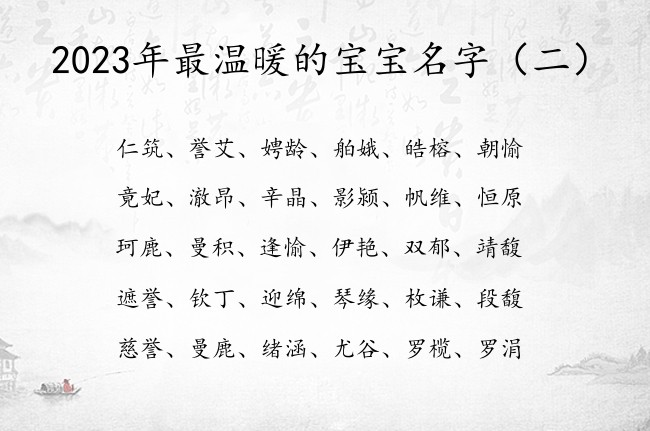 2023年最温暖的宝宝名字（二）
仁筑、誉艾、娉龄、舶娥、皓榕、朝愉
竟妃、澈昂、辛晶、影颍、帆维、恒原
珂鹿、曼积、逢愉、伊艳、双郁、靖馥
遮誉、钦丁、迎绵、琴缘、枚谦、段馥
慈誉、曼鹿、绪涵、尤谷、罗榄、罗涓